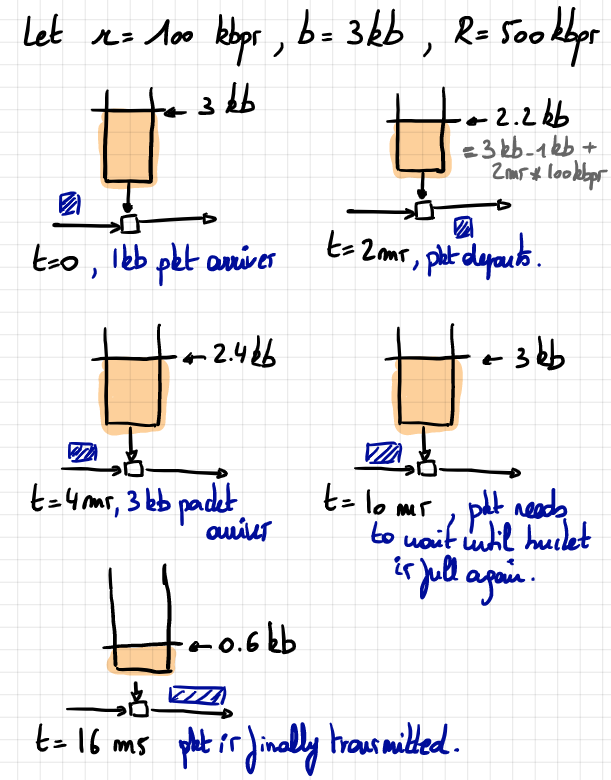 Let r = 100 kbps, b = 3kb, R = 500 kbps
3 kb
t=0, 1kb pkt arrives
2.2 kb
= 3kb - 1kb +
2ms * 100kbps
t= 2ms, pkt departs.
2.4 kb
t= 4 ms, 3 kb packet
arrives
3 kb
t= 10 ms, pkt needs
to wait until bucket
is full again.
0.6 kb
t= 16 ms pkt is finally transmitted.